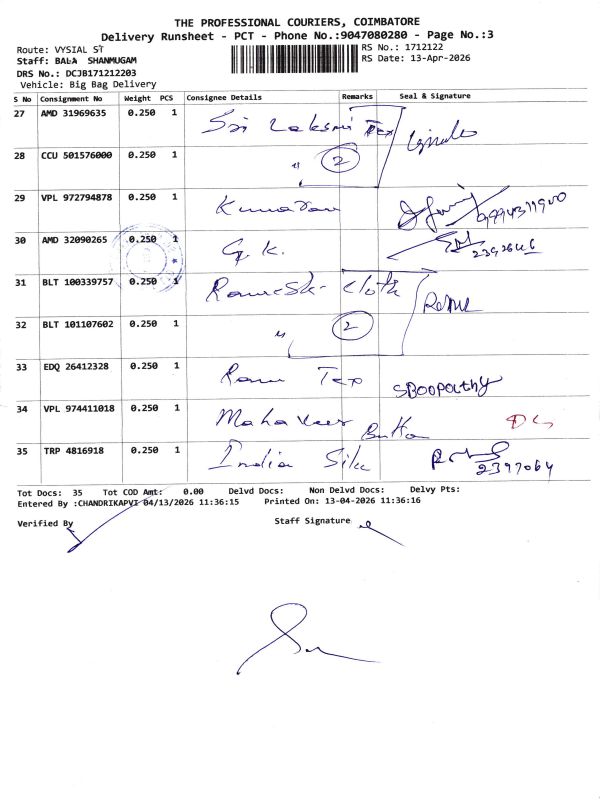 THE PROFESSIONAL COURIERS, COIMBATORE
Delivery Runsheet - PCT - Phone No.:9047080280 - Page No.:3
Route: VYSIAL ST
RS No.: 1712122
Staff: BALA SHANMUGAM
RS Date: 13-Apr-2026
DRS No.: DCJB171212203
Vehicle: Big Bag Delivery
S No Consignment No Weight PCS Consignee Details Remarks Seal & Signature
27 AMD 31969635 0.250 1 Sri Laksmi Tex
28 CCU 501576000 0.250 1 " 2
29 VPL 972794878 0.250 1 Kumaran
30 AMD 32090265 0.250 1 G. K.
31 BLT 100339757 0.250 1 Ramesh Cloth
32 BLT 101107602 0.250 1 " 2
33 EDQ 26412328 0.250 1 Ramu Tex SBOOPathy
34 VPL 974411018 0.250 1 Mahaveer Button
35 TRP 4816918 0.250 1 India Silk 2397064
Tot Docs: 35 Tot COD Amt: 0.00 Delvd Docs: Non Delvd Docs: Delvy Pts:
Entered By :CHANDRIKAPVI 04/13/2026 11:36:15 Printed On: 13-04-2026 11:36:16
Verified By
Staff Signature